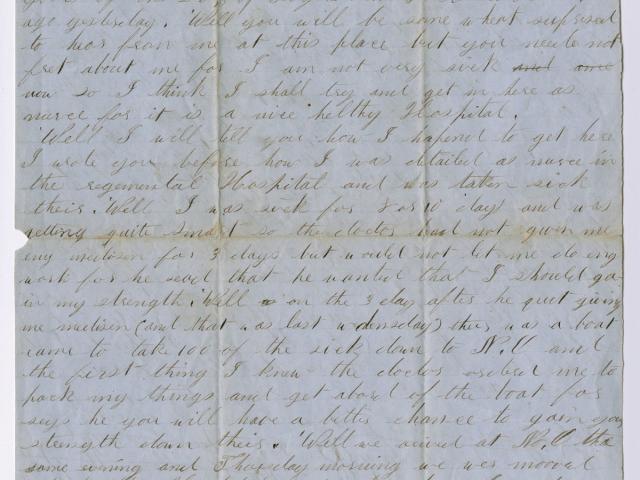 ago yesterday. Well you will be some what supprised
to hear from me at this place but you neede not
fret about me for I am not very sick and
now so I think I shall try and get in here as
nurce for it is a nice helthy Hospital.
Well I will tell you how I hapened to get here
I wrote you before how I was detailed as nurce in
the regemental Hospital and was taken sick
their. Well I was sick for 8 or 10 days and was
getting quite smart so the doctor had not given me
any medisen for 3 days but would not let me do eny
work for he said that he wanted that I should ga-
in my strength. Well on the 3 day after he quit giving
me medisen (and that was last wdensday) there was a boat
came to take 100 of the sick down to N.O and
the first thing I knew the doctor ordred me to
pack my things and get abord of the boat for
says he you will have a better chance to gain you
strength down their. Well we arived at N.O the
same evening and Thursday morning we wer mooved